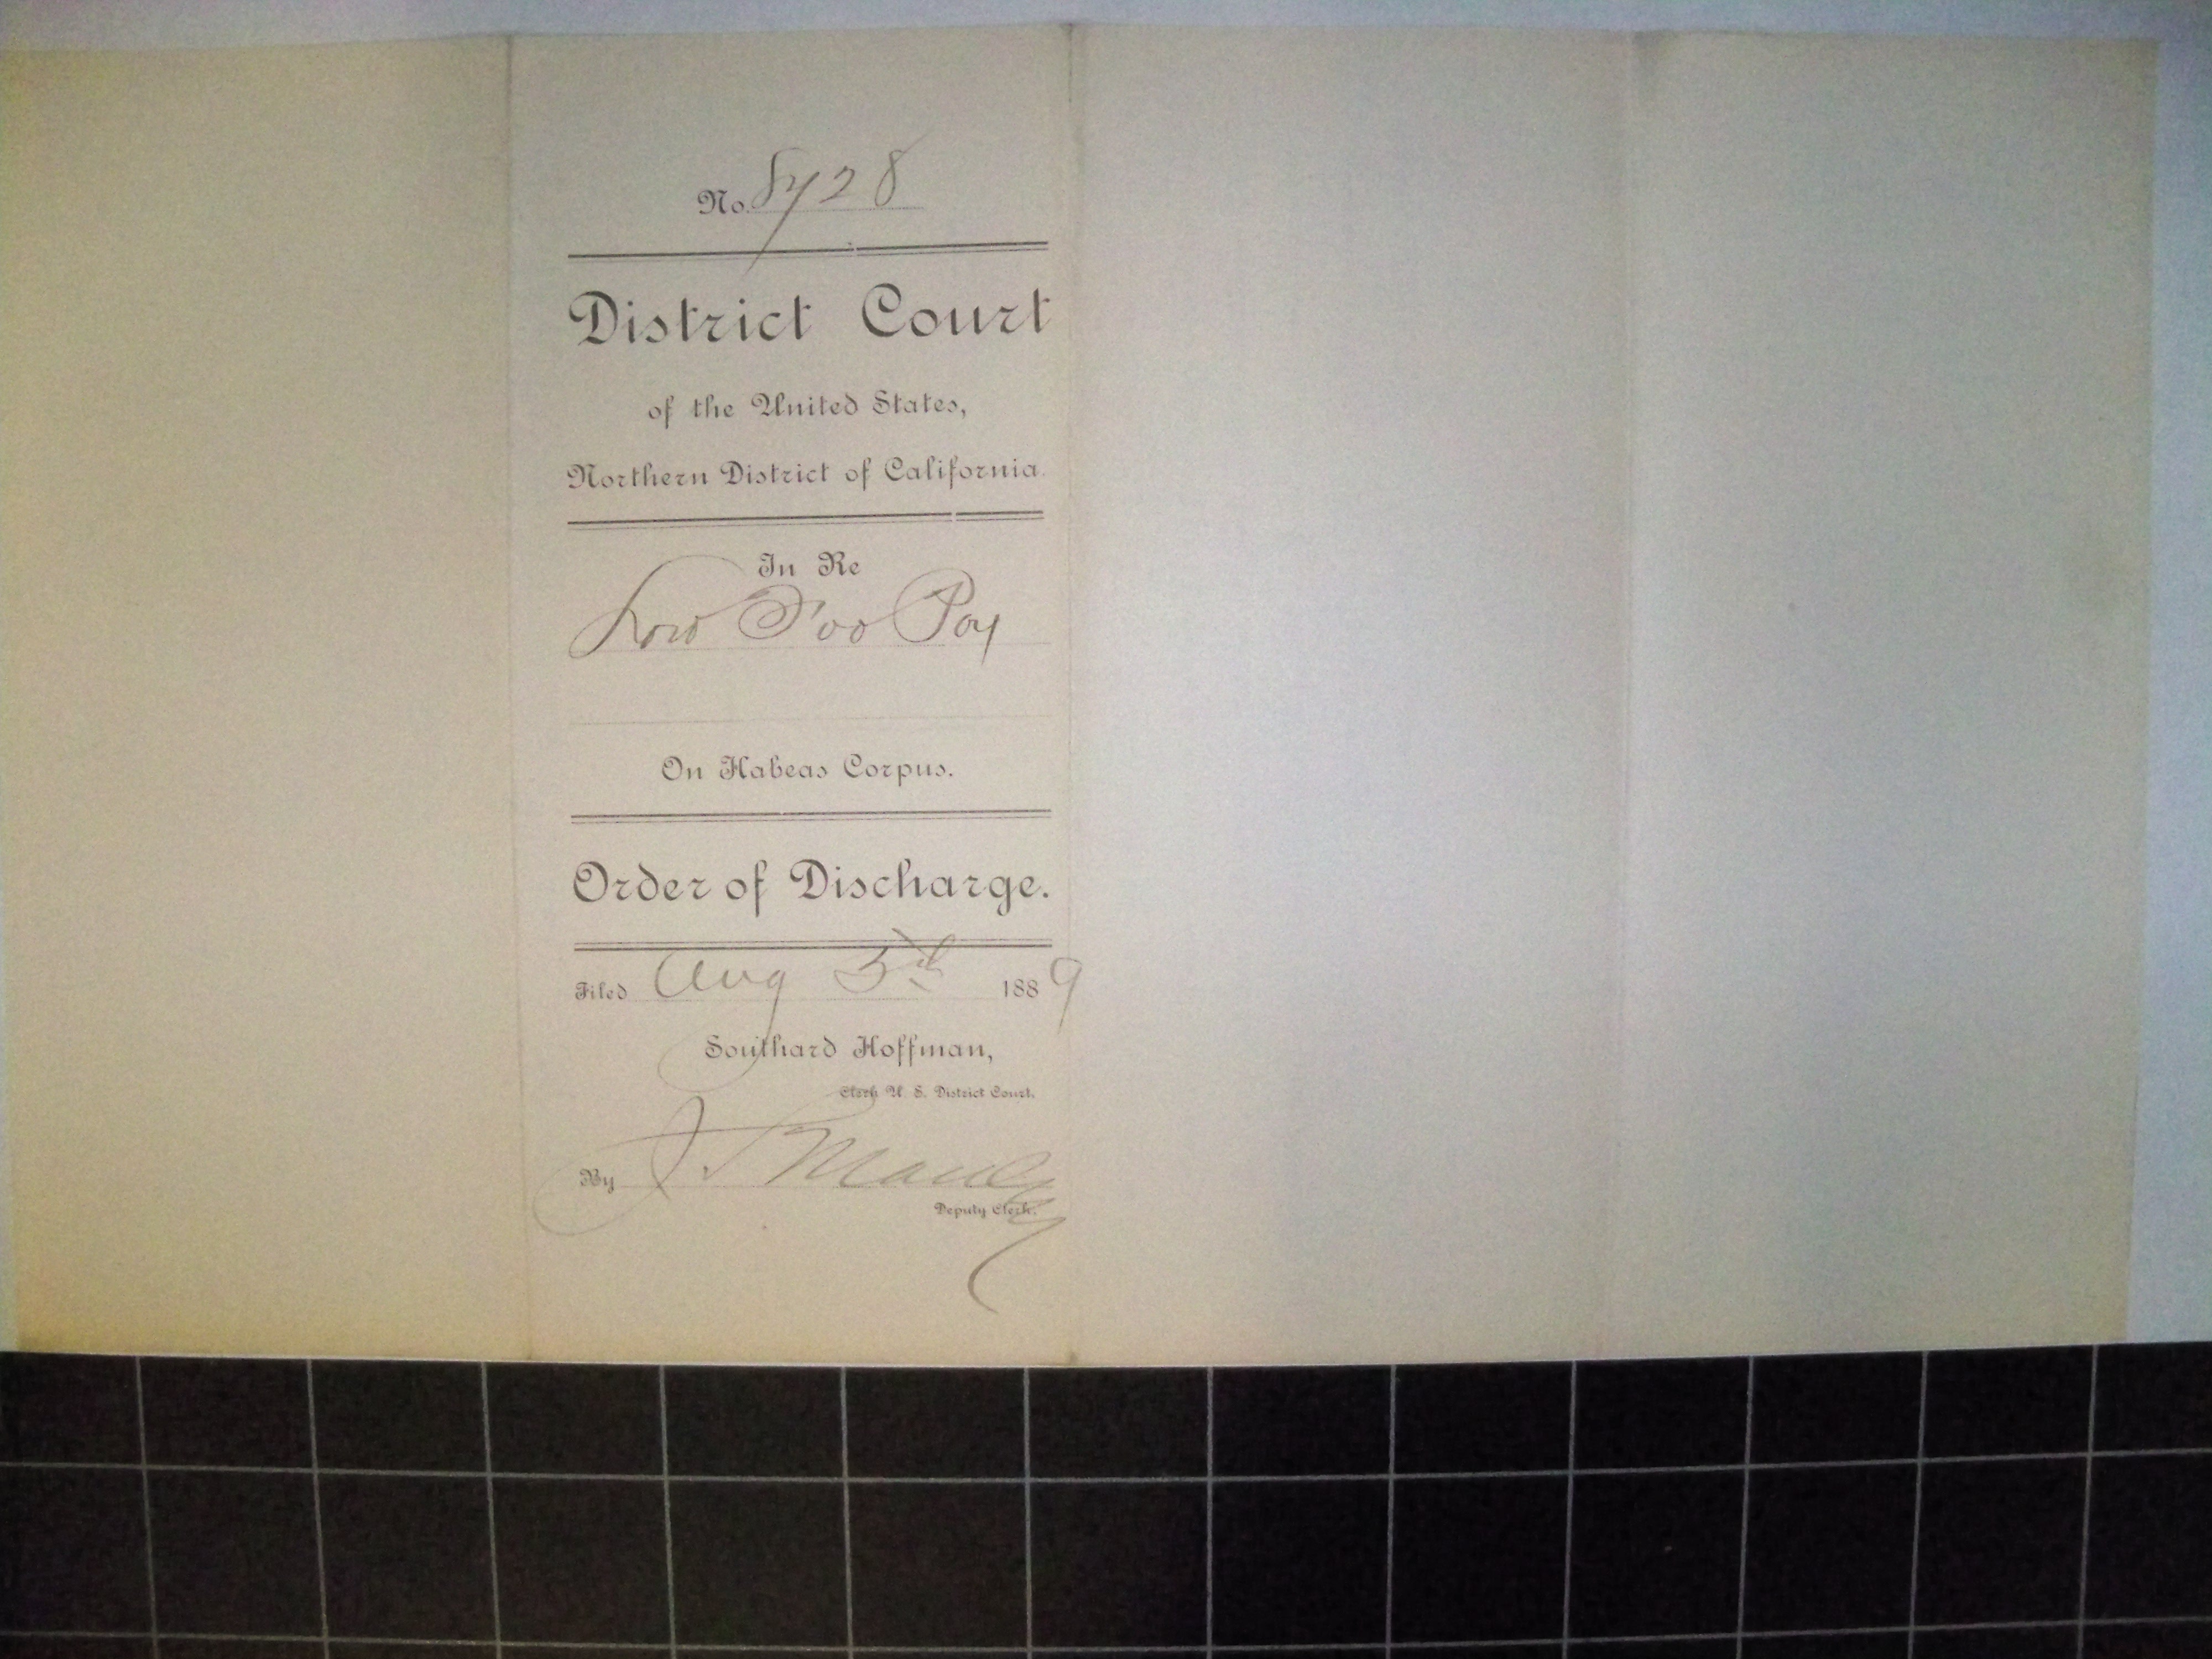 No. 8728
District Court
of the United States,
Northern District of California.
In Re
Low Foo Poy
On Habeas Corpus.
Order of Discharge.
Filed Aug 3d 1889
Southard Hoffman,
Clerk U. S. District Court.
By J. S. Manley
Deputy Clerk.